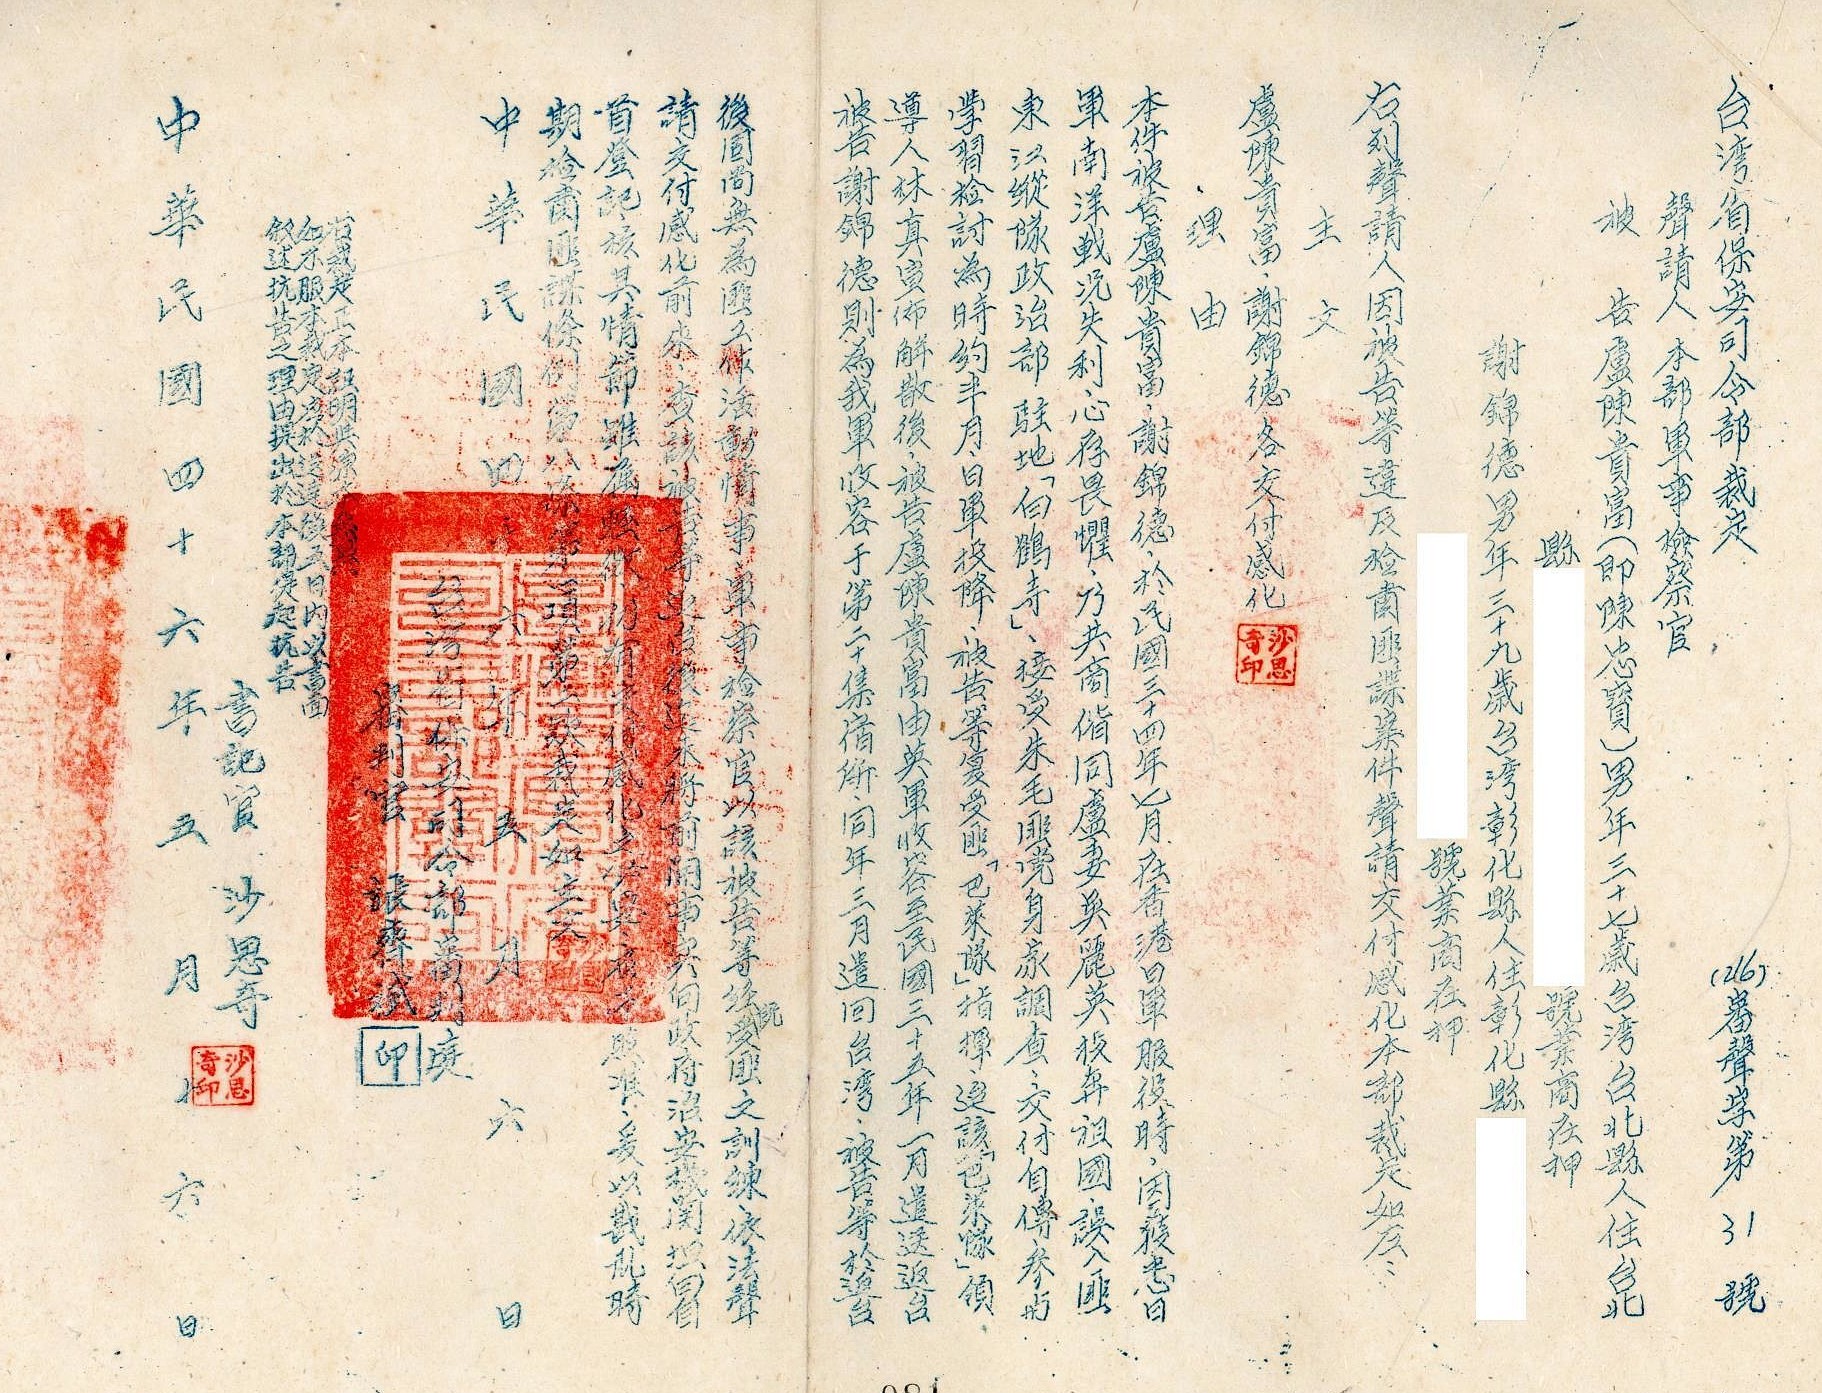 台湾省保安司令部裁定
(46)審聲字第31號
聲請人 本部軍事檢察官
被告 盧陳貴富(即陳忠寶)男年三十七歲台湾台北縣人住台北
縣
號業商在押
謝錦德男年三十九歲台湾彰化縣人住彰化縣
號業商在押
右列聲請人因被告等違反檢肅匪諜案件聲請交付感化本部裁定如左:
主文
盧陳貴富、謝錦德各交付感化
沙思奇印
理由
本件被告盧陳貴富、謝錦德、於民國三十四年七月在香港日軍服役時、因獲悉日
軍南洋戰況失利、心存畏懼、乃共商偕同盧妻吳麗英投奔祖國、誤入匪
東江縱隊政治部駐地「白鶴寺」、接受朱毛匪党身家調查、交付自傳、參与
学習檢討為時約半月、日軍投降、被告等復受匪「巴萊隊」指揮、迨該「巴萊隊」領
導人林真宣佈解散後、被告盧陳貴富由英軍收容至民國三十五年一月遣送返台
被告謝錦德則為我軍收容于第二十集循所、同年三月遣回台湾、被告等於返台
後固尚無為匪工作活動情事、軍事檢察官以該被告等既經受匪之訓練、依法聲
請交付感化前來、查該被告等返台後迄未將前開事實向政府治安機関坦白自
首登記核其情節雖屬輕微仍有交付感化之必要
照准、爰以戡乱時
期檢肅匪諜條例第八條第一項第二款裁定如主文
中華民國四十六年五月六日
台湾省保安司令部審判庭
審判官 張齊斌 印
右裁定正本證明與原本無異
如不服本裁定應於送達後五日內以書面
敘述抗告之理由提出於本部提起抗告
書記官 沙思奇
沙思奇印
中華民國四十六年五月六日
081